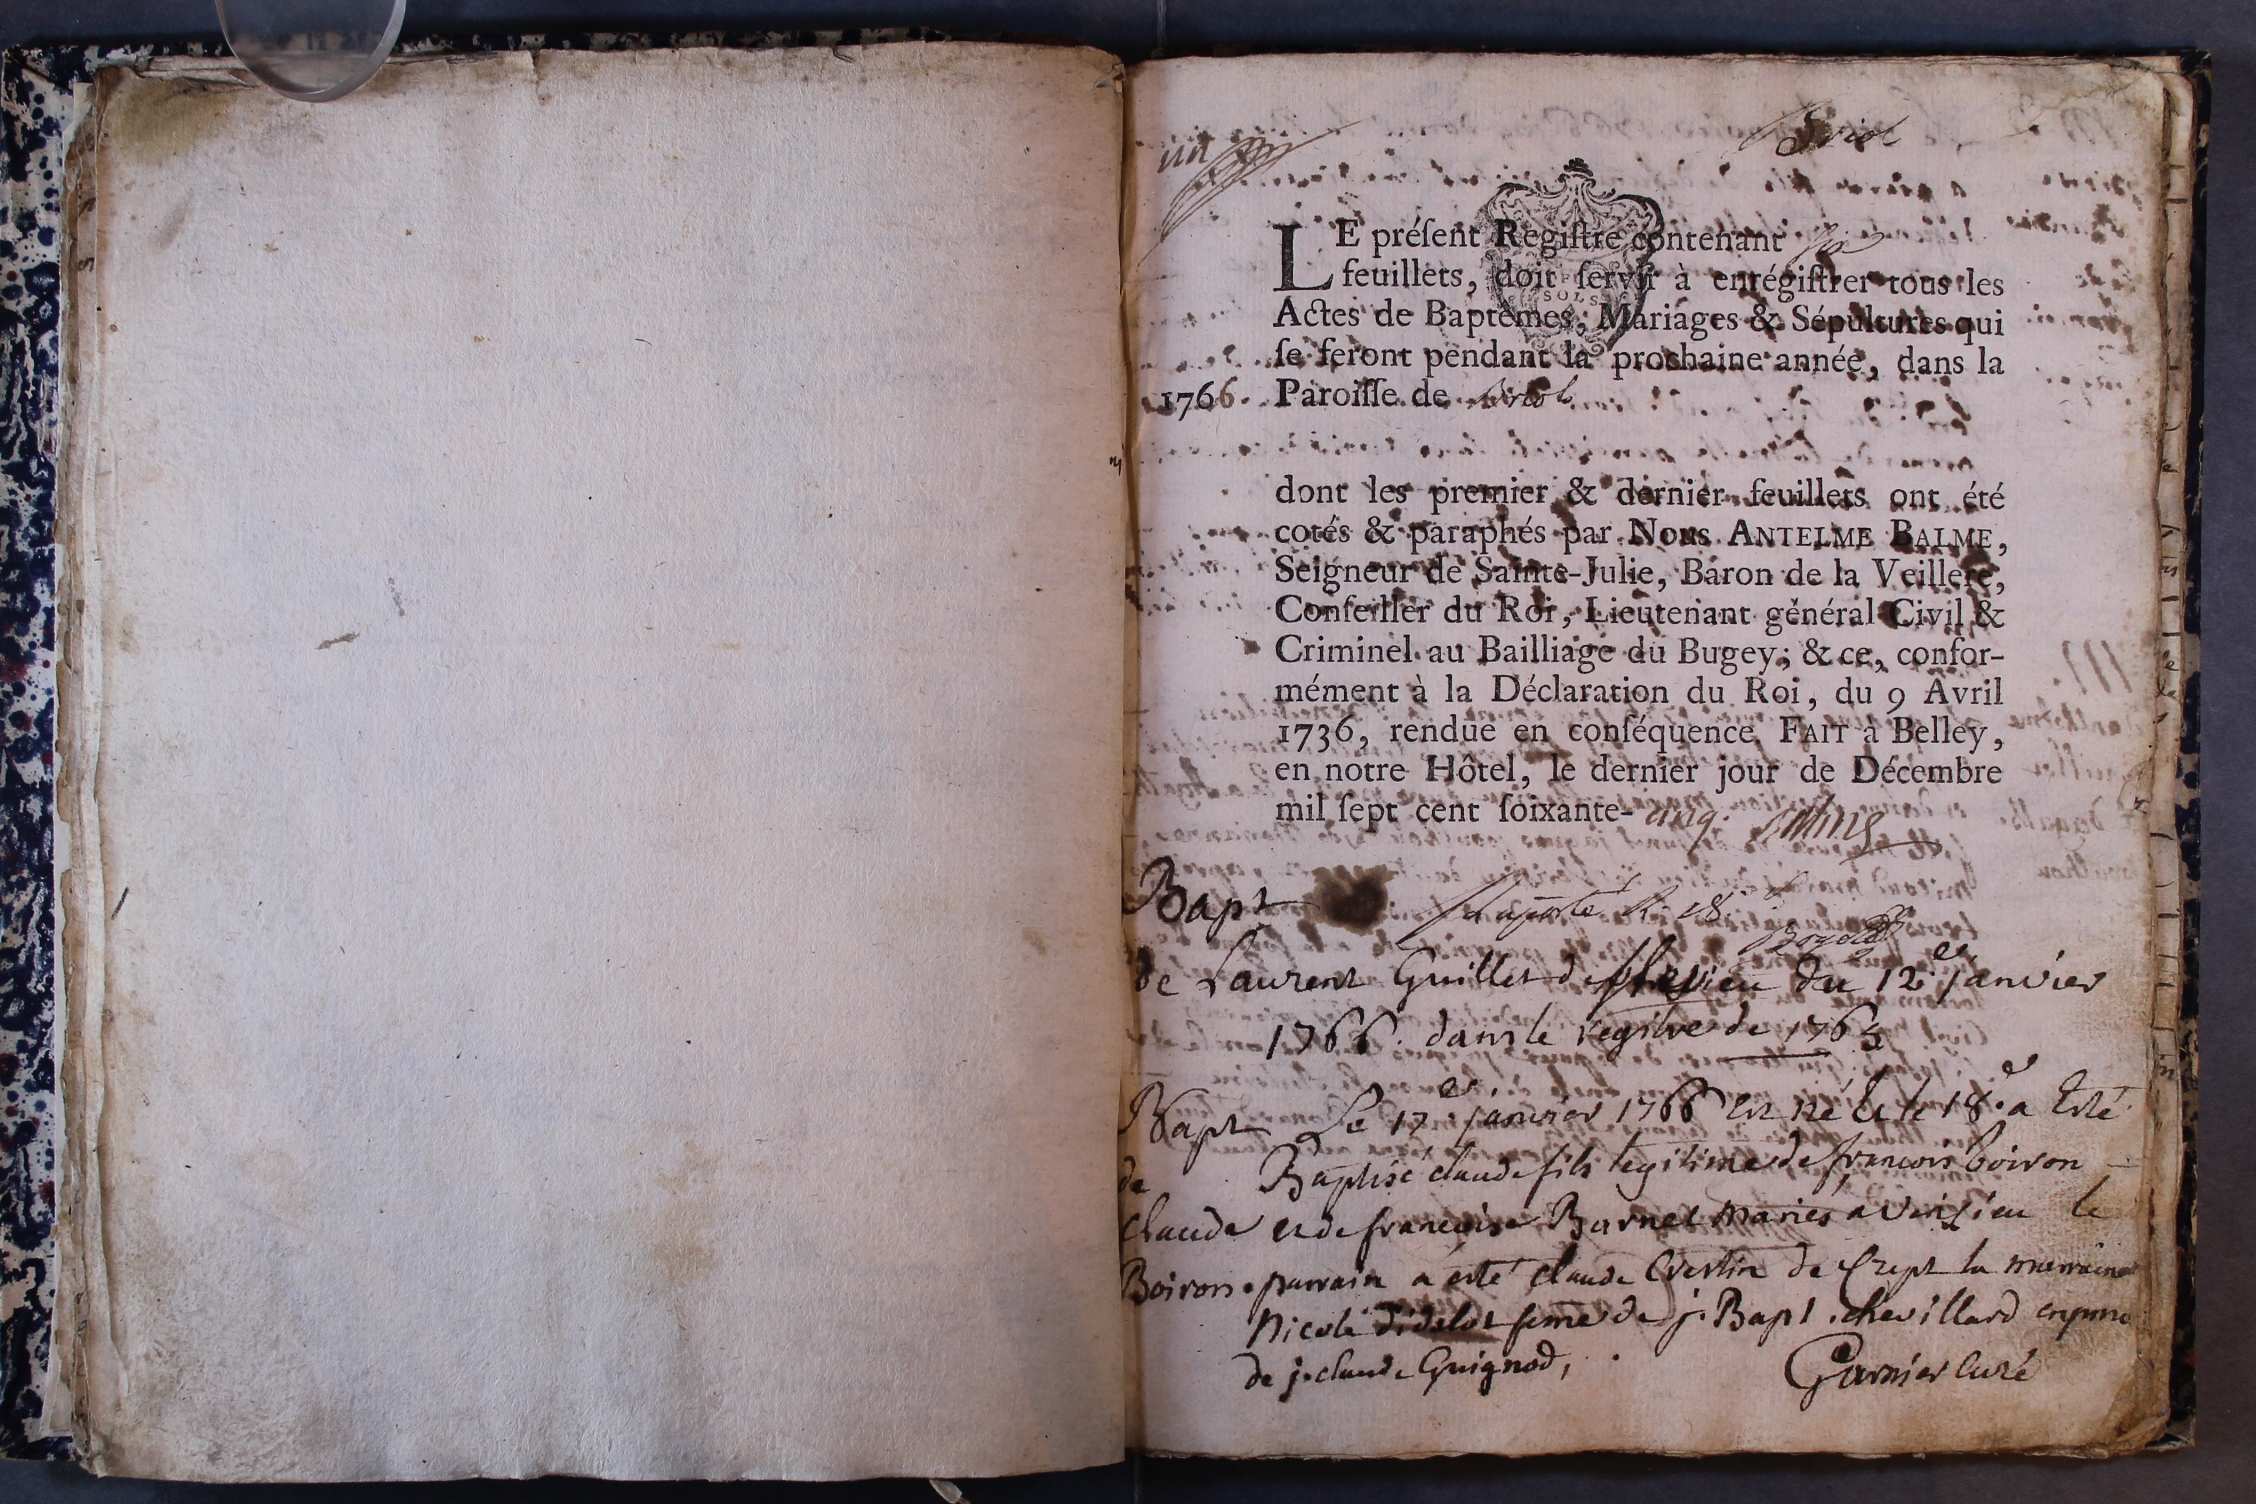 un
Briol
LE préſent Regiſtre contenant six
feuillets, doit ſervir à enrégiſtrer tous les
Actes de Baptêmes, Mariages & Sépultures qui
ſe feront pendant la prochaine année, dans la
1766. Paroiſſe de Briol
dont les premier & dernier feuillets ont été
cotés & paraphés par Nous ANTELME BALME,
Seigneur de Sainte-Julie, Baron de la Veillere,
Conſeiller du Roi, Lieutenant général Civil &
Criminel au Bailliage du Bugey; & ce, confor-
mément à la Déclaration du Roi, du 9 Avril
1736, rendue en conſéquence. FAIT à Belley,
en notre Hôtel, le dernier jour de Décembre
mil ſept cent ſoixante-cinq. Balme
Bapt
de Laurent Guillet de flevieu du 12e janvier
1766. dans le regitre de 1765
Bapt Le 17e janvier 1766 est né et le 18e a esté
de Baptisé claude fils legitime de françois boiron
claude et de francoise Burnet mariés a Verisieu le
Boiron parrain a esté claude Crestin de Crept la marraine
Nicole didelot feme de j. Bapt. chevillard en pnce
de j. claude Guignod,
Garnier curé